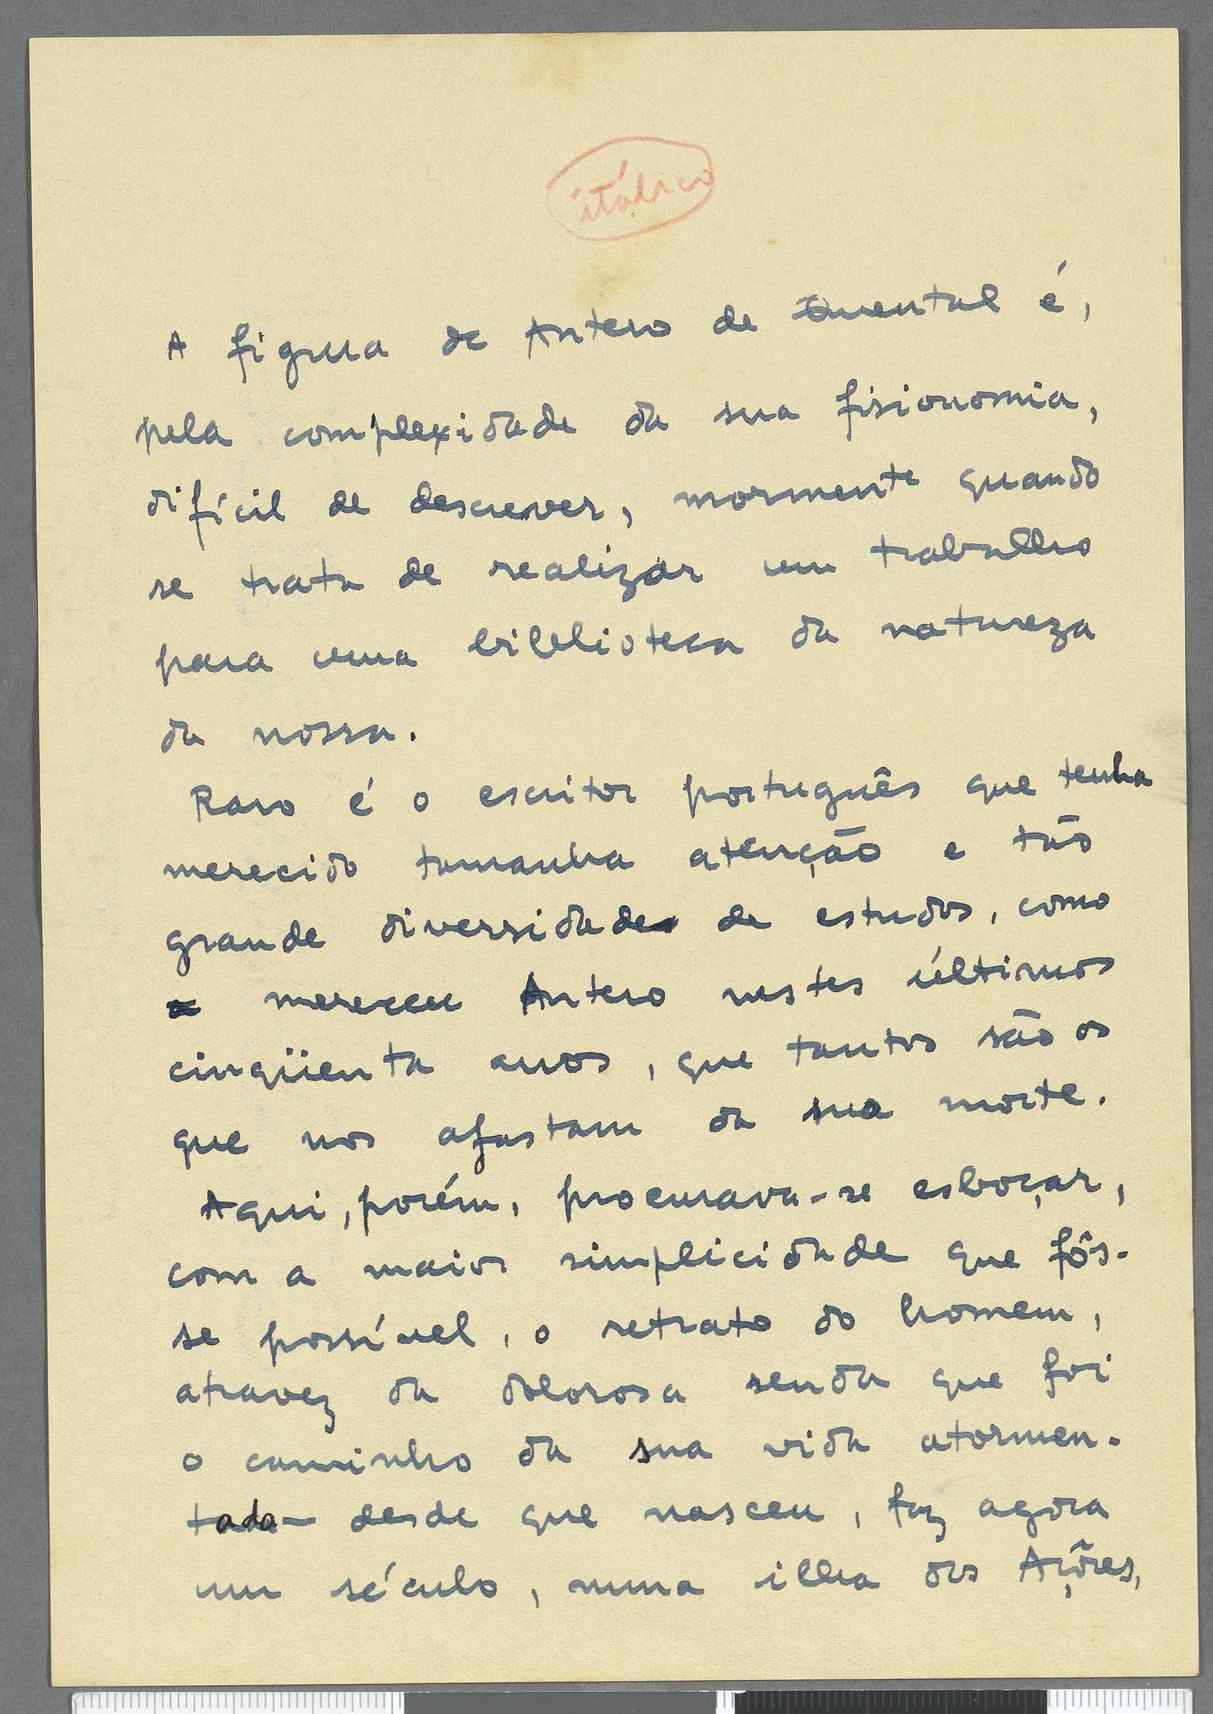 itálico
A figura de Antero de Quental é,
pela complexidade da sua fisionomia,
difícil de descrever, mormente quando
se trata de realizar um trabalho
para uma biblioteca da natureza
da nossa.
Raro é o escritor português que tenha
merecido tamanha atenção e tão
grande diversidade de estudos, como
mereceu Antero nestes últimos
cinqüenta anos, que tantos são os
que nos afastam da sua morte.
Aqui, porém, procurava-se esboçar,
com a maior simplicidade que fôs-
se possível, o retrato do homem,
atravez da dolorosa senda que foi
o caminho da sua vida atormen-
tada – desde que nasceu, faz agora
um século, numa ilha dos Açôres,